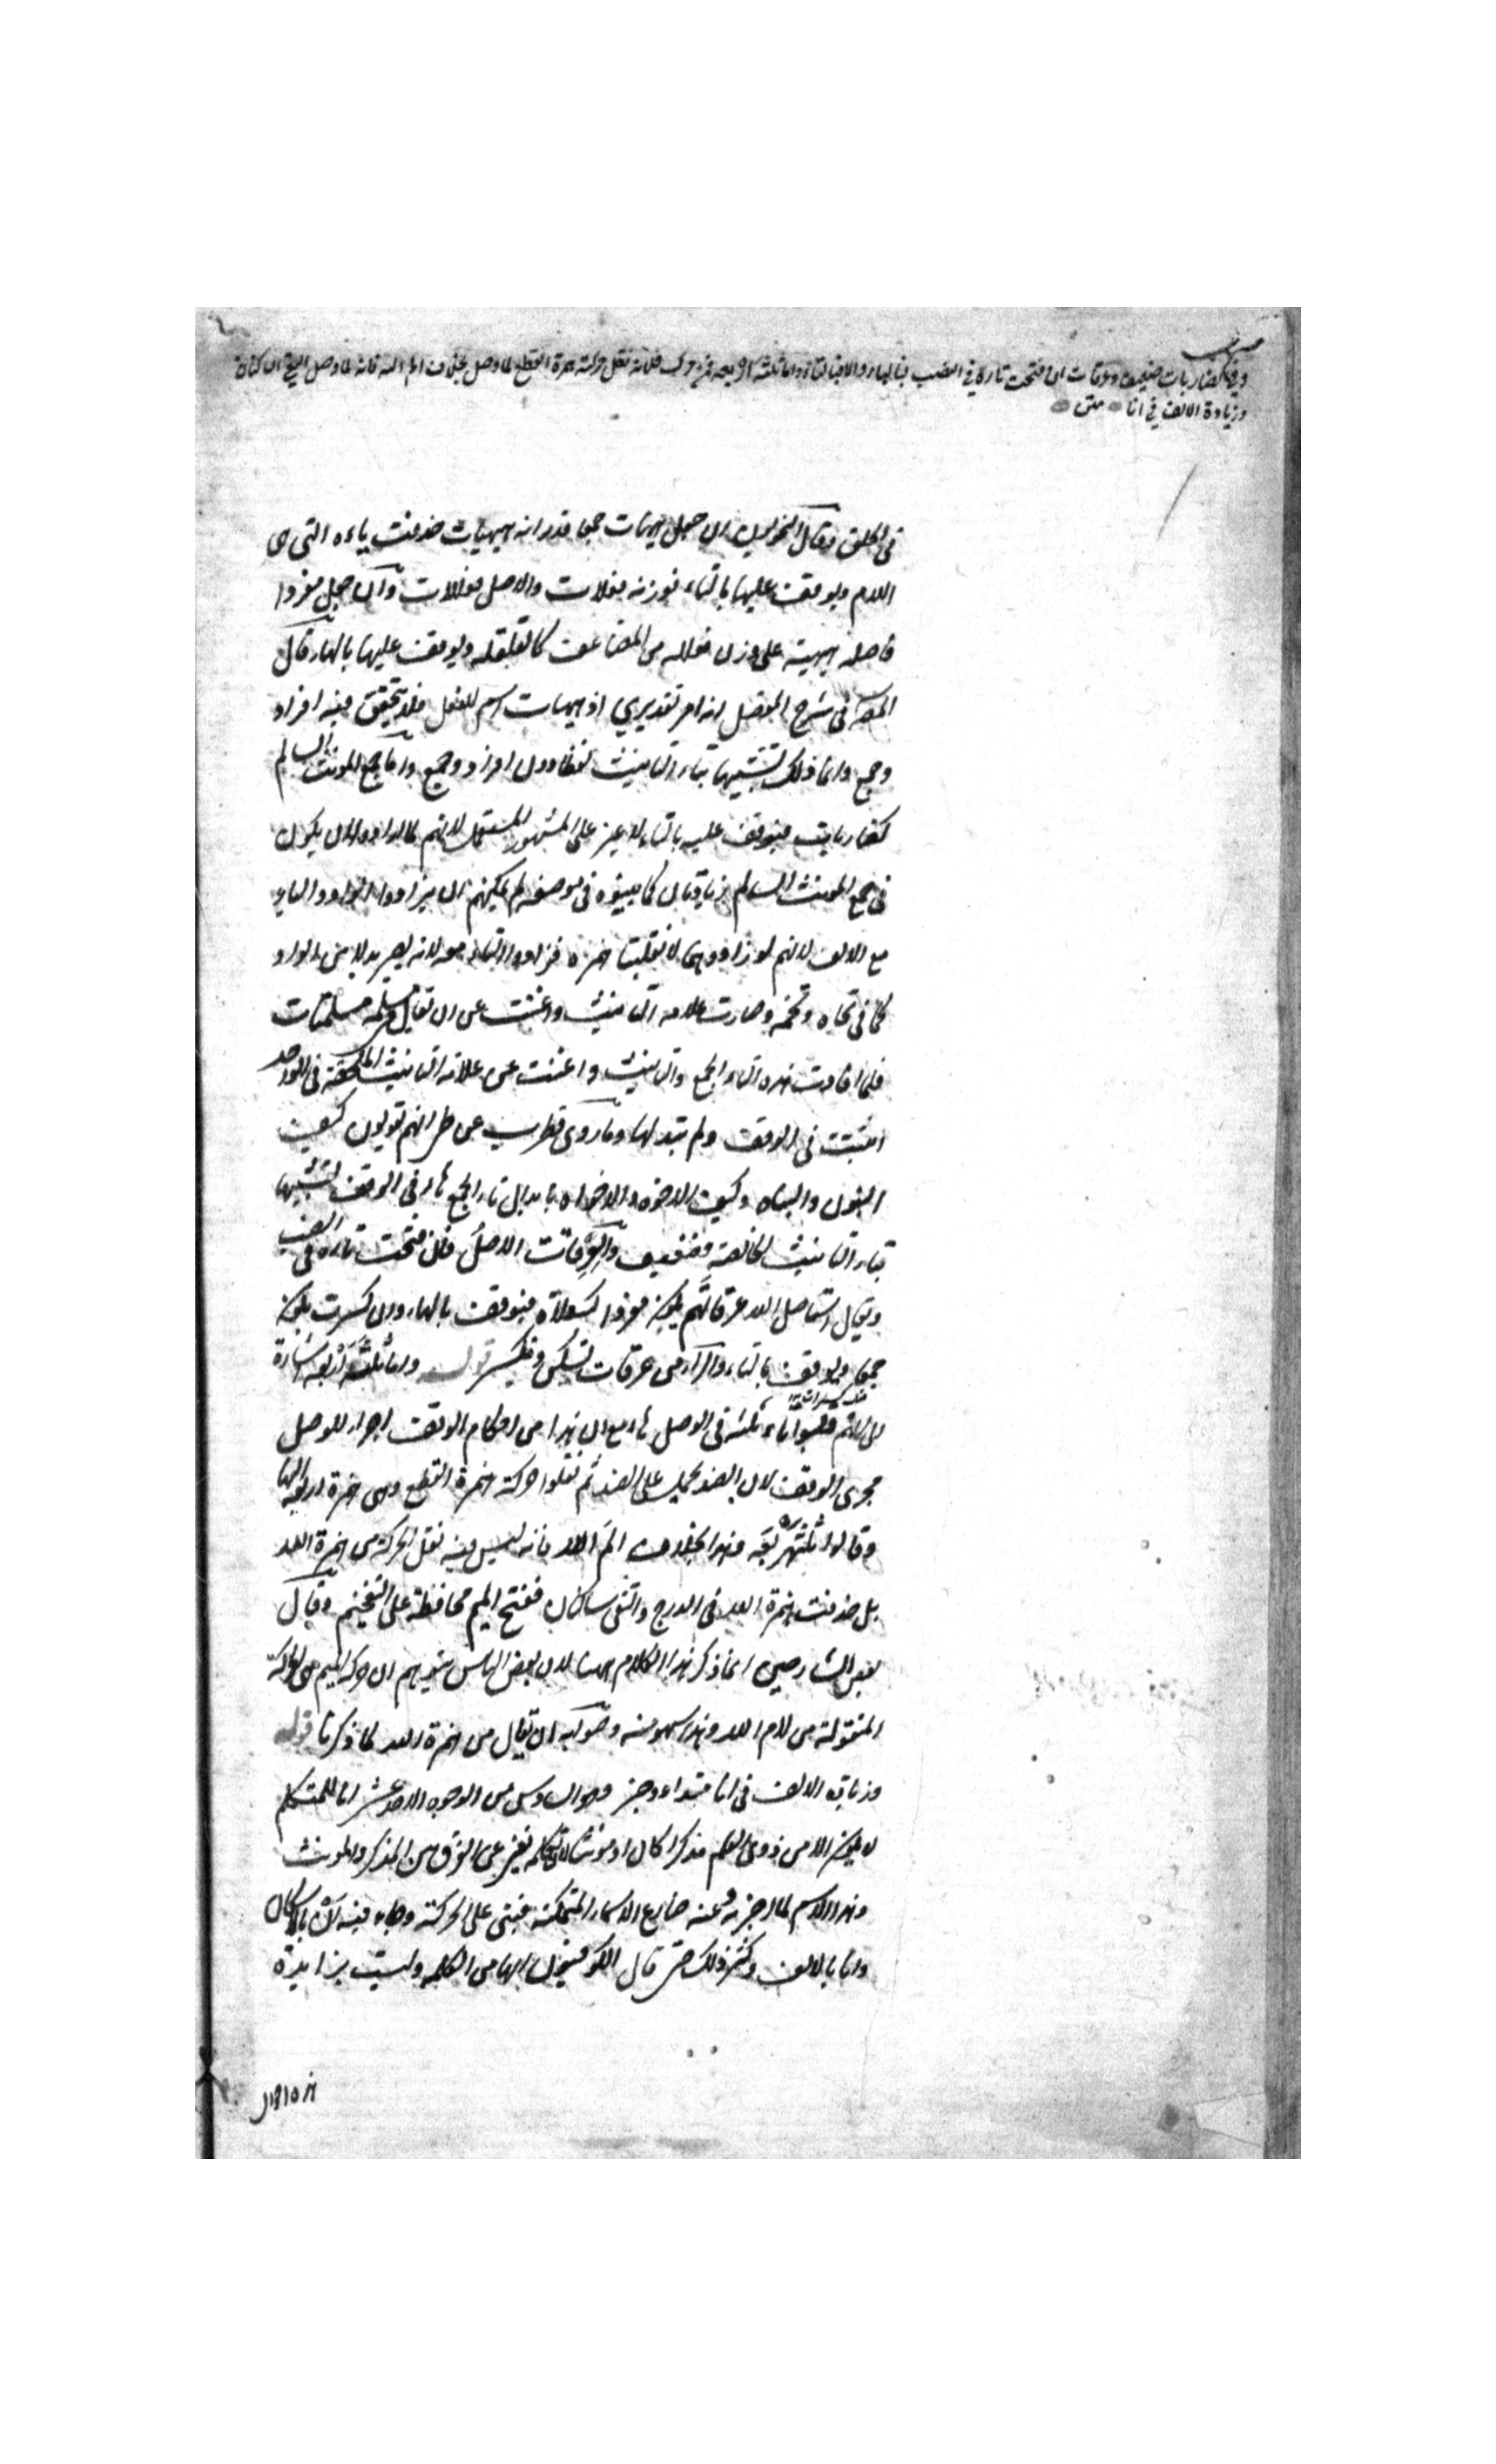 وفي كضاربات ضعيف وعرقات ان فتحت تاره في النصب فبالهاء والا فبالتاء واما ثلثه اربعه فيمن حرك فلانه نقل حركة همزة القطع لما وصل بخلاف الم الله فانه لما وصل التقى الساكنان
وزيادة الالف في انا متن
في الحلق وقال النحويون ان جعل هيهات جمعا قدر انه هيهيات حذفت ياءه التى هى
اللام ويوقف عليها بالتاء فوزنه فعلات والاصل فعللات وان جعل مفردا
فاصله هيهية على وزن فعللة من المضاعف كالقلقلة ويوقف عليها بالهاء قال
المص فى شرح المفصل انه امر تقديري اذ هيهات اسم للفعل فلا يتحقق فيه افراد
وجمع وانما ذلك لتشبيهها بتاء التانيث لفظا دون افراد وجمع واما جمع المونث السالم
كضاربات فيوقف عليه بالتاء لا غير على المشهور المستعمل لانهم لما ارادوا ان يكون
فى جمع المونث السالم زيادتان كما بينوه فى موضعه لم يمكنهم ان يزادوا الواو والياء
مع الالف لانهم لو زادوهما لانقلبتا همزه فزادوا التاء معه لانه يصير بدلا من الواو
كما فى تجاه وتخمه وصارت علامه التانيث واغنت عن ان تقال فى مسلمه مسلمتات
فلما افادت هذه التاء الجمع والتانيث واغنت عن علامة التانيث الملحقة فى الواحد
اثبتت فى الوقف ولم تبدلها وما روى قطرب عن طي انهم تقولون كيف
البنون والبناه وكيف الاخوه والاخواه بابدال تاء الجمع هاء فى الوقف لتشبيهها
بتاء التانيث الخالصة فضعيف والعرقات الاصل فان فتحت تاره فى النصب
ويقال استاصل الله عرقاتهم يكن مفردا كسعلاة فيوقف بالهاء وان كسرت يكن
جمعا ويوقف بالتاء والراء من عرقات تسكن وتكسر قوله واما ثلثة اربعه اشارة
الى انهم قلبوا تاء ثلثه فى الوصل هاء مع ان هذا من احكام الوقف اجراء للوصل
مجرى الوقف لان الضد يحمل على الضد ثم نقلوا حركة همزة القطع وهى همزة اربعه الى الهاء
وقالوا ثلثهربعه وهذا بخلاف الم الله فانه ليس فيه نقل الحركة من همزة الله
بل حذفت همزة الله فى الدرج والتقى ساكنان ففتح الميم محافظة على التفخيم وقال
بعض الشارحين انما ذكر هذا الكلام ههنا لان بعض الناس يتوهم ان حركة الميم هى الحركة
المنقولة من لام الله وهذا سهو منه وصوابه ان يقال من همزة الله لما ذكرنا قوله
وزيادة الالف فى انا مبتداء وخبر وهو السادس من الوجوه الاحد عشر انا للمتكلم
لا يكن الا من ذوى العلم مذكرا كان او مونثا لان تكلمه يغنى عن الفرق بين المذكر والمونث
وهذا الاسم لما اخبر به وعنه ضارع الاسماء المتمكنة فبنى على الحركة وجاء فيه ان بالاسكان
وانا بالالف وكثر ذلك حتى قال الكوفيون انها من الكلمه وليست بزايدة